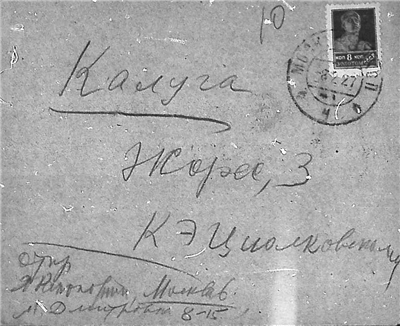 10
МОСКВА
8 2 27
КОП 8 КОП
Калуга
Жорес, 3
К Э Циолковскому
Отпр
Москва
М. Дмитровка 8-15